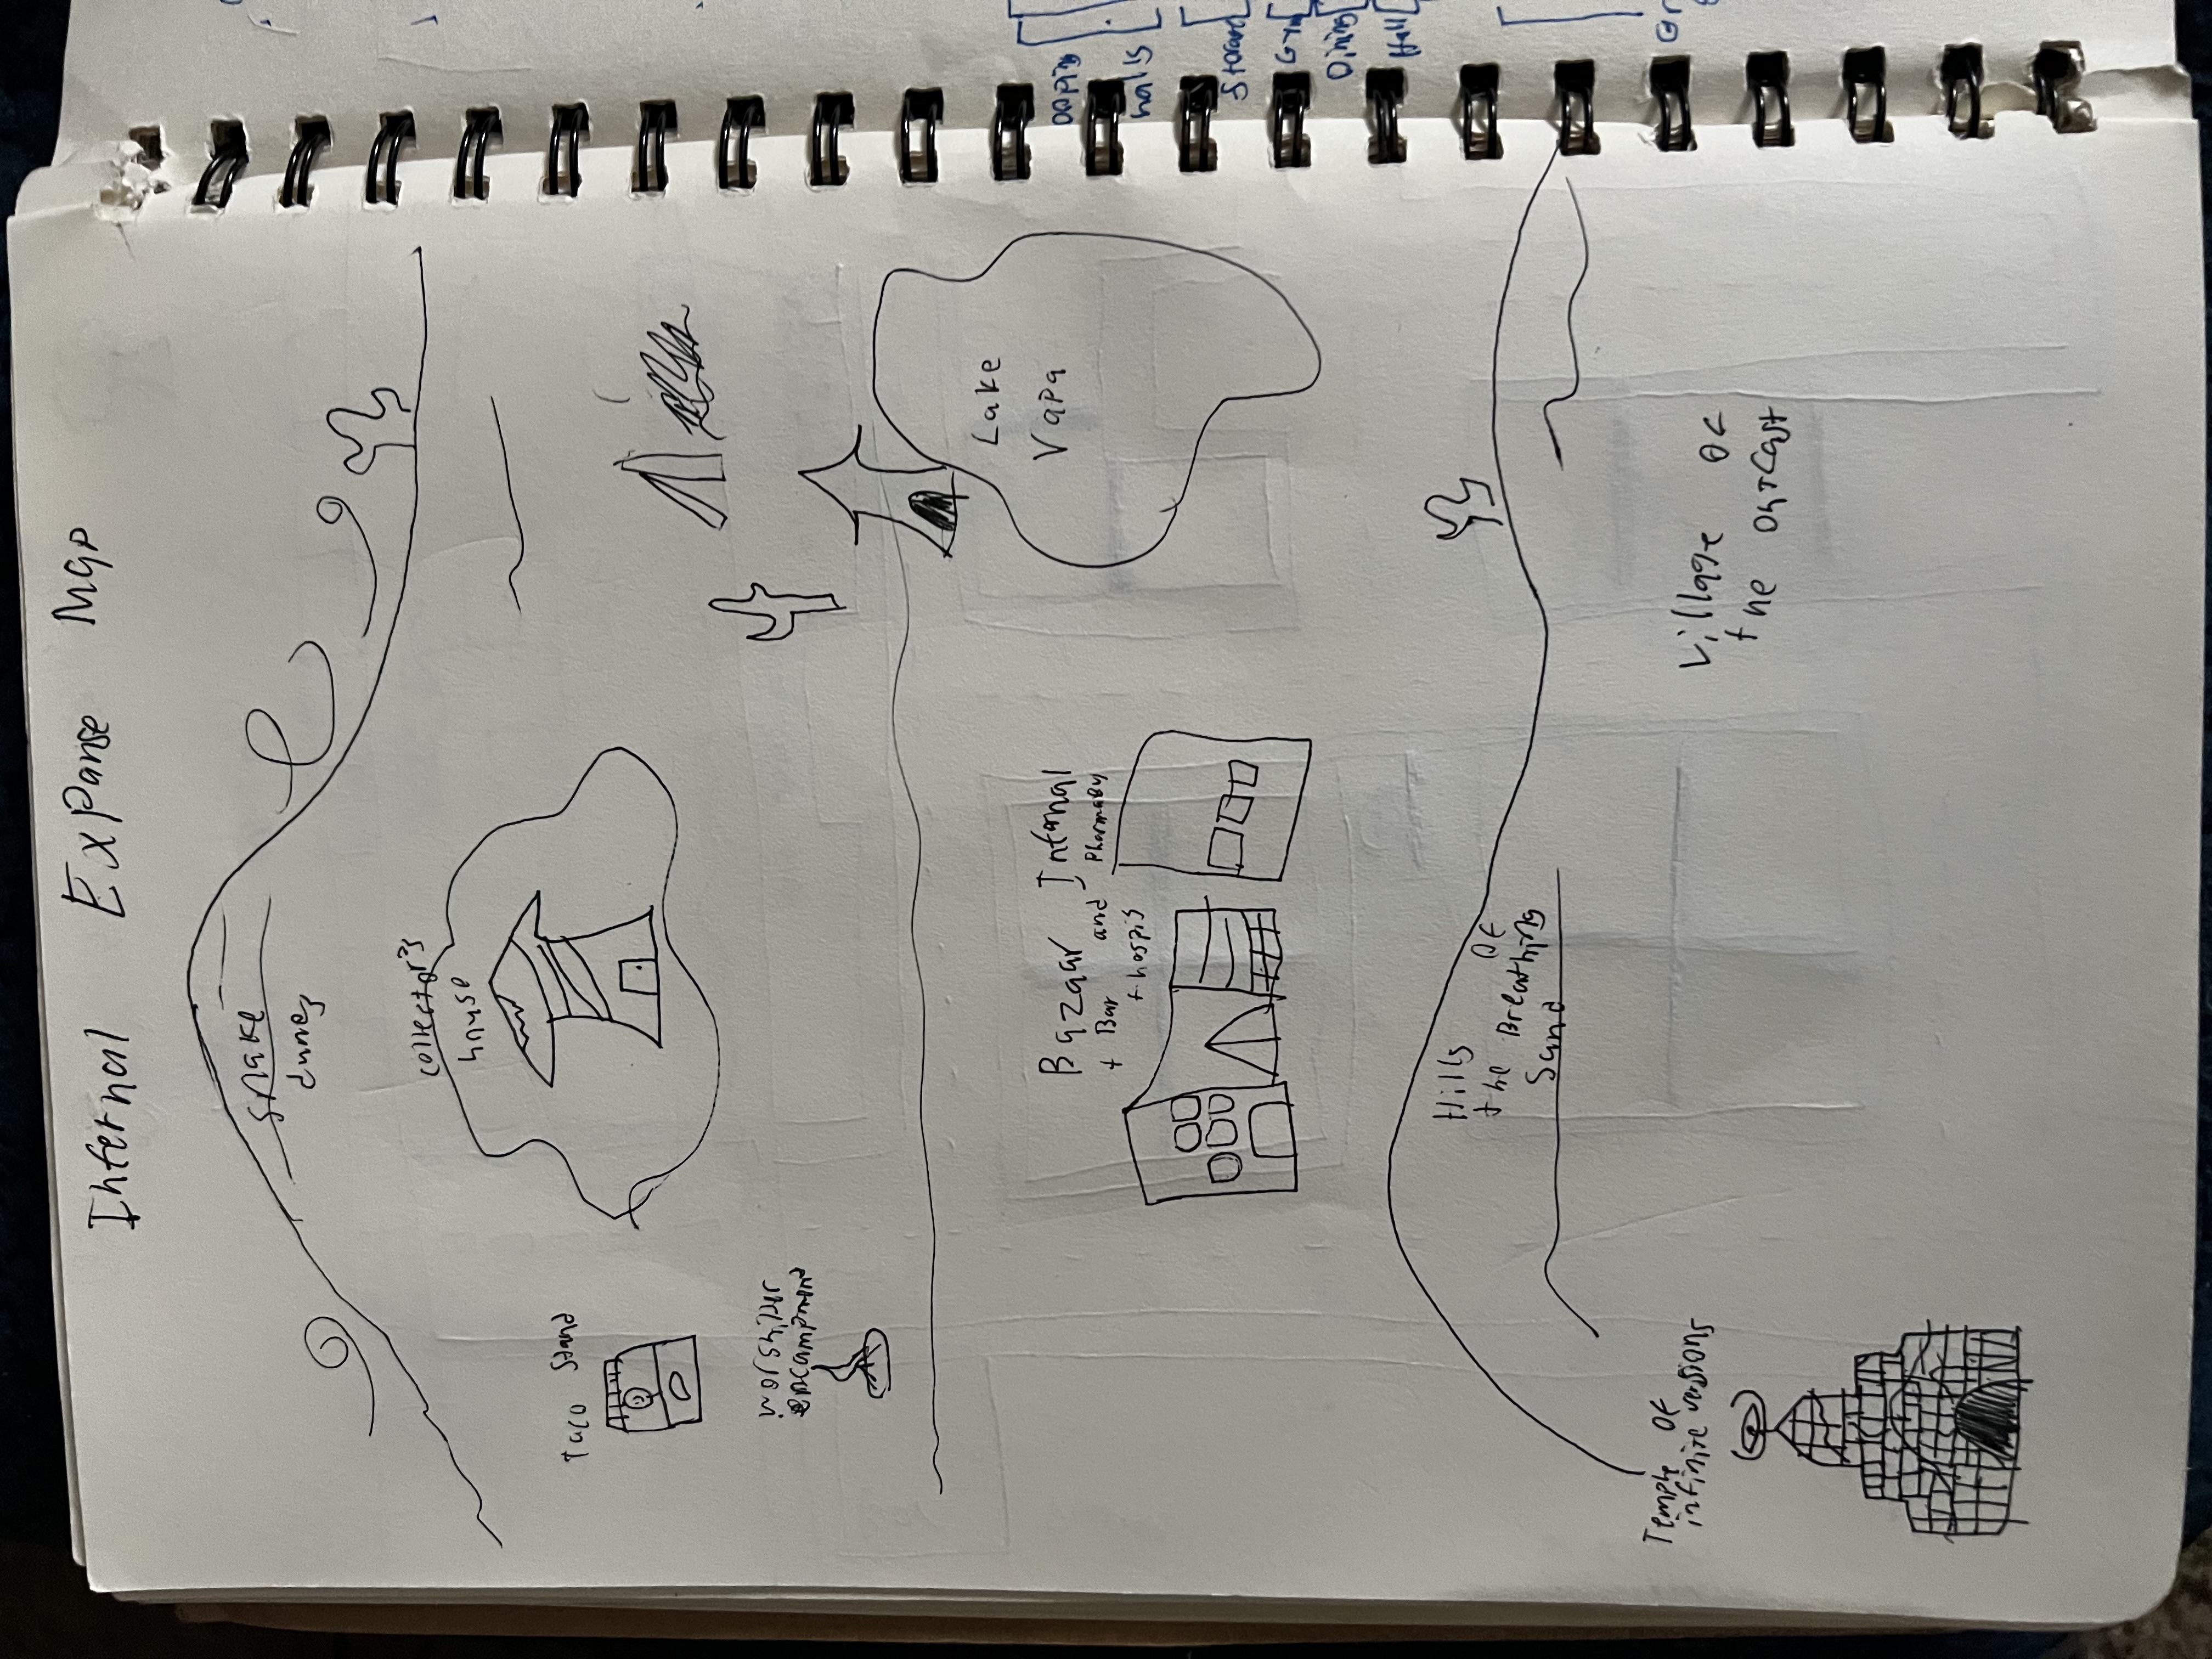 Infernal Expanse Map
Snake
dunes
collector's
house
Taco Stand
worshiper
encampment
Lake
Vapa
Bazaar and Infernal
+ Bar Pharmacy
+ hospis
Hills of
the Breathing
Sand
Temple of
infinite versions
Village of
the outcast
halls
Storage
Gym
Dining
Hall